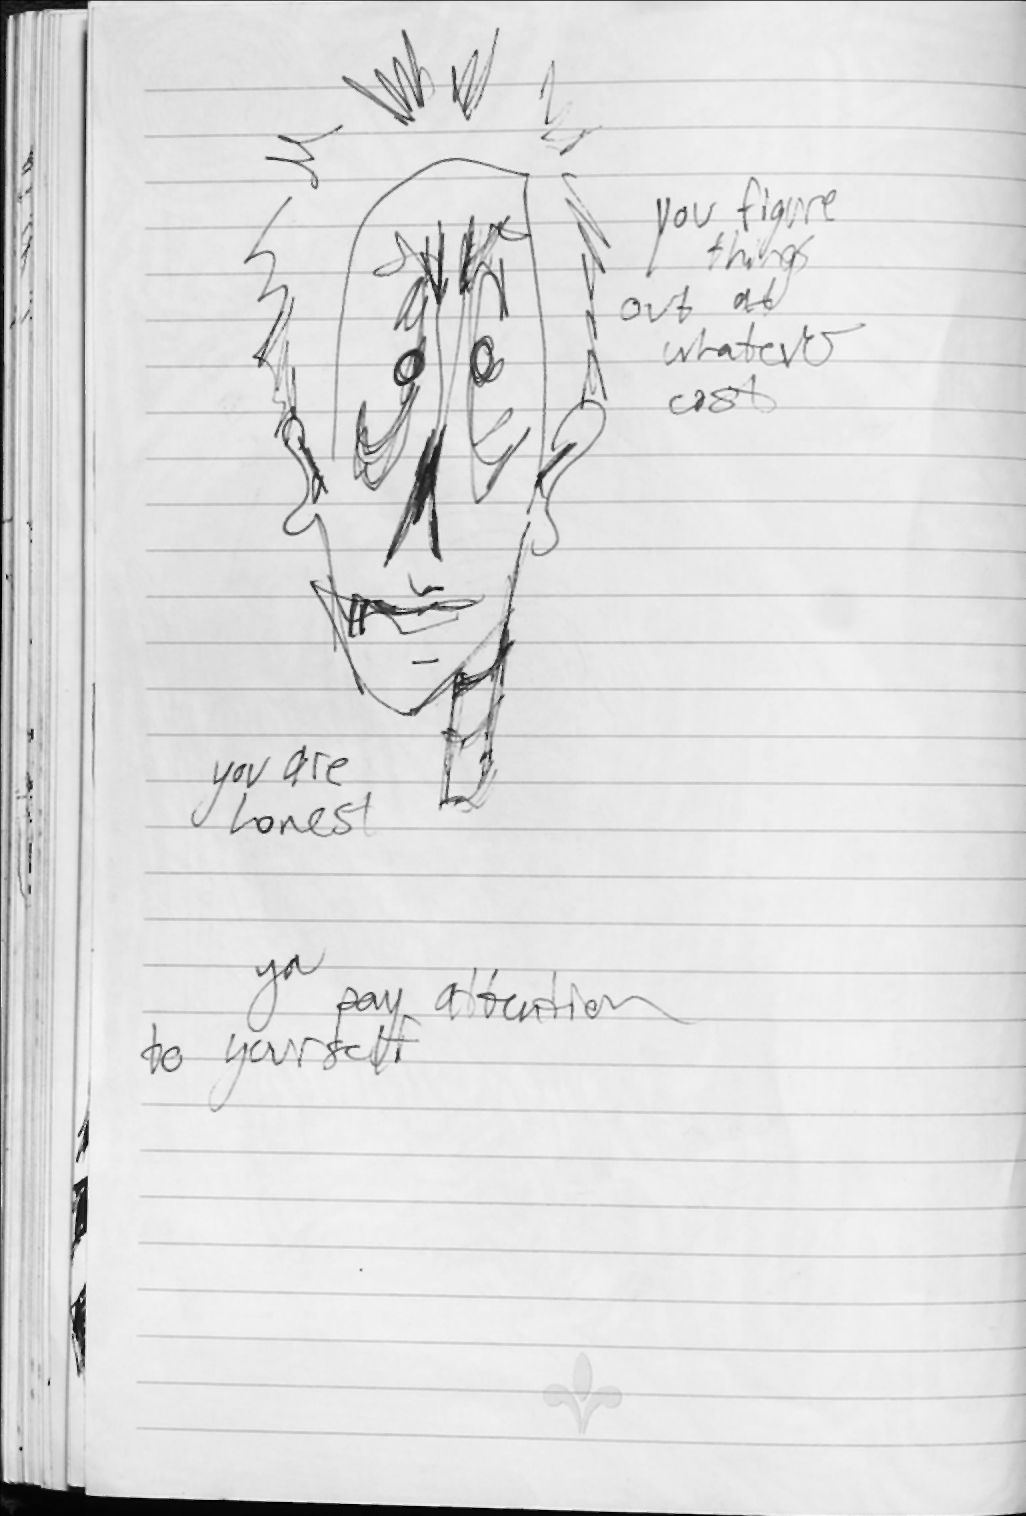 you figure
things
out at
whatever
cost
you are
honest
you
pay attention
to yourself